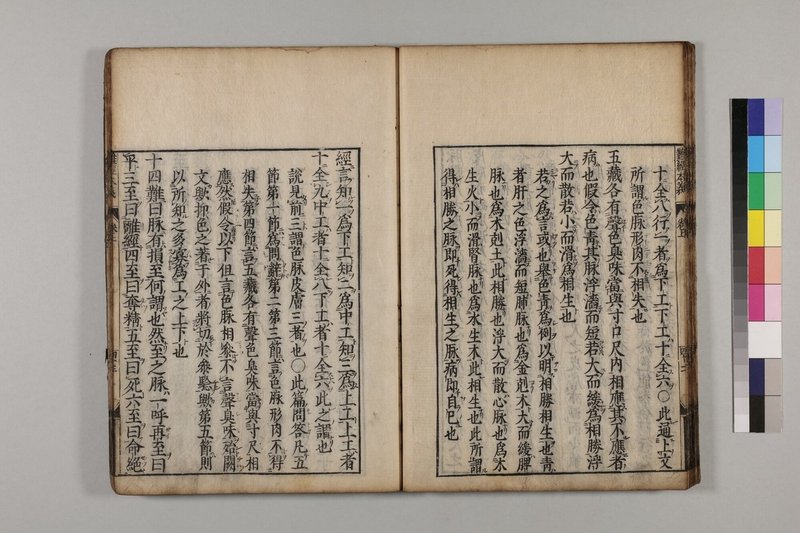 十全八行一者為下工下工十全六〇此通上文
所謂色脉形内不相失也
五藏各有聲色臭味當與寸口尺内相應其不應者
病也假令色青其脉浮濇而短若大而緩為相勝浮
大而散若小而滑為相生也
若之為言或也舉色青為例以明相勝相生也青
者肝之色浮濇而短肺脉也為金剋木大而緩脾
脉也為木剋土此相勝也浮大而散心脉也為木
生火小而滑腎脉也為水生木此相生也此所謂
得相勝之脉即死得相生之脉病即自已也
經言知一為下工知二為中工知三為上工上工者
十全九中工者十全八下工者十全六此之謂也
說見前三謂色脉皮膚三者也〇此篇問答凡五
節第一節為問難第二第三節言色脉形内不得
相失第四節言五藏各有聲色臭味當與寸尺相
應然假令以下但言色脉相參不言聲臭味殆闕
文歟抑色之著于外者將切於參驗歟第五節則
以所知之多寡為工之上下也
十四難曰脉有損至何謂也然至之脉一呼再至曰
平三至曰離經四至曰奪精五至曰死六至曰命絕